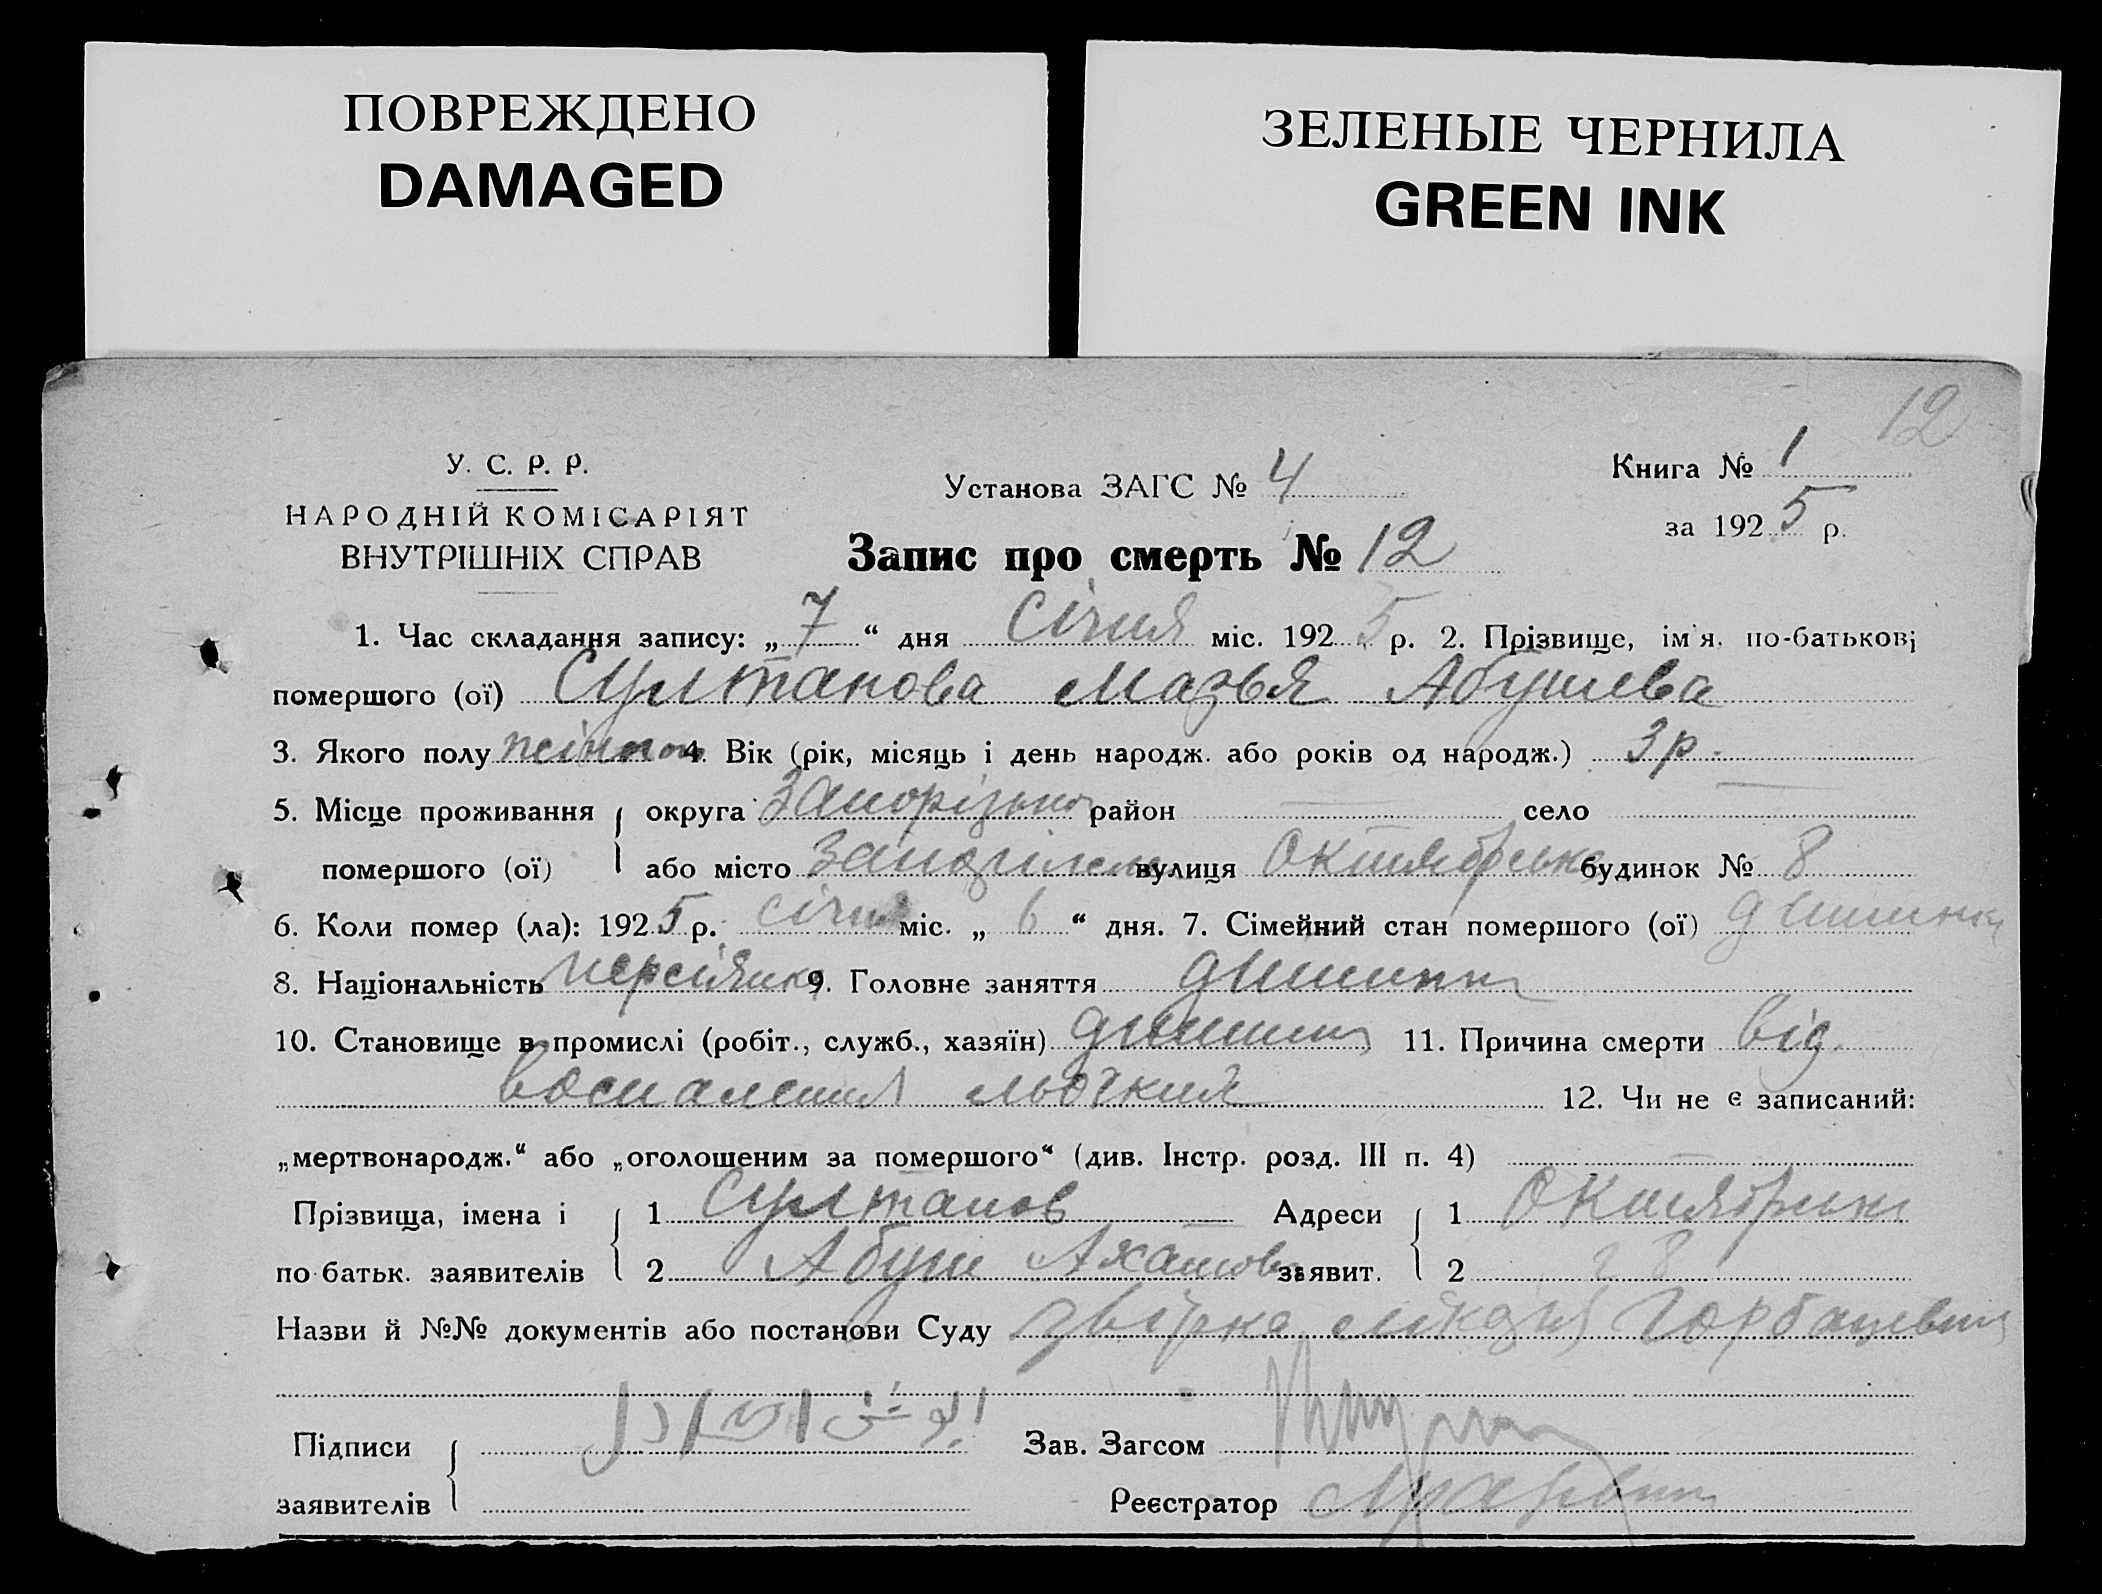 ПОВРЕЖДЕНО
DAMAGED
ЗЕЛЕНЫЕ ЧЕРНИЛА
GREEN INK
12
У. С. Р. Р.
НАРОДНІЙ КОМІСАРІЯТ
ВНУТРІШНІХ СПРАВ
Установа ЗАГС № 4
Книга № 1
за 1925 р.
Запис про смерть № 12
1. Час складання запису: „7“ дня Січня міс. 1925 р. 2. Прізвище, ім'я, по-батькові
помершого (ої) Султанова Мазья Абушева
3. Якого полу жіночого 4. Вік (рік, місяць і день народж. або років од народж.) 3 р.
5. Місце проживання округа Запорізька район село
помершого (ої) або місто Запоріжжя вулиця Октябрьська будинок № 8
6. Коли помер (ла): 1925 р. січня міс. „6“ дня. 7. Сімейний стан помершого (ої) дитина
8. Національність персіянка 9. Головне заняття дитина
10. Становище в промислі (робіт., служб., хазяїн) дитина 11. Причина смерти від
воспаления льогких 12. Чи не є записаний:
„мертвонародж.“ або „оголошеним за помершого“ (див. Інстр. розд. III п. 4)
Прізвища, імена і 1 Султанов Адреси 1 Октябрьська
по батьк. заявителів 2 Абуш заявит. 2 8
Назви й №№ документів або постанови Суду
Підписи Зав. Загсом
заявителів Реєстратор